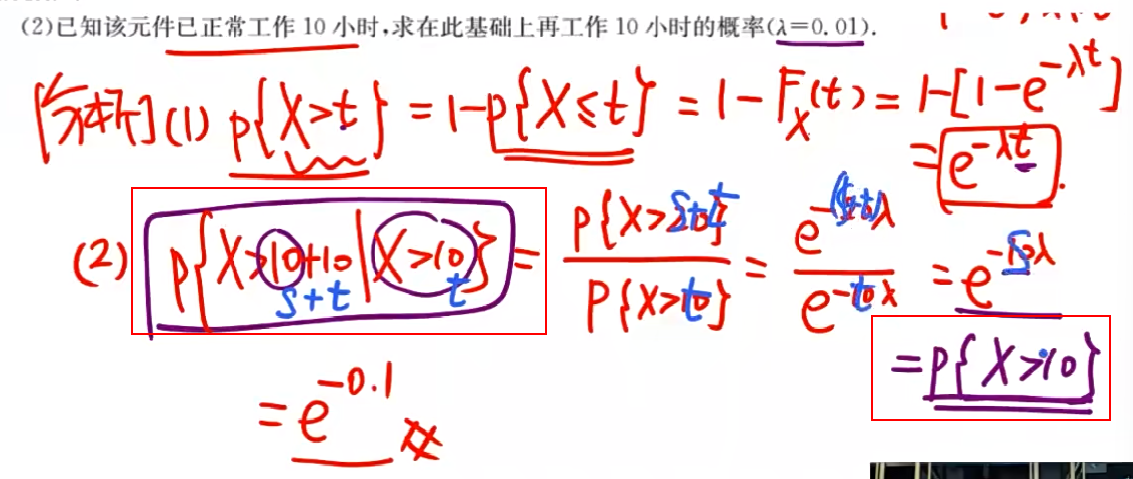 (2)已知该元件已正常工作 10 小时,求在此基础上再工作 10 小时的概率(λ=0.01).
[分析](1) P{X>t} = 1-P{X≤t} = 1-F_X(t) = 1-[1-e^{-λt}]
= e^{-λt}.
(2) P{X>10+10|X>10} = P{X>20}/P{X>10} = e^{-20λ}/e^{-10λ} = e^{-10λ}
s+t t s+t t (s+t) t s
= P{X>10}
= e^{-0.1}